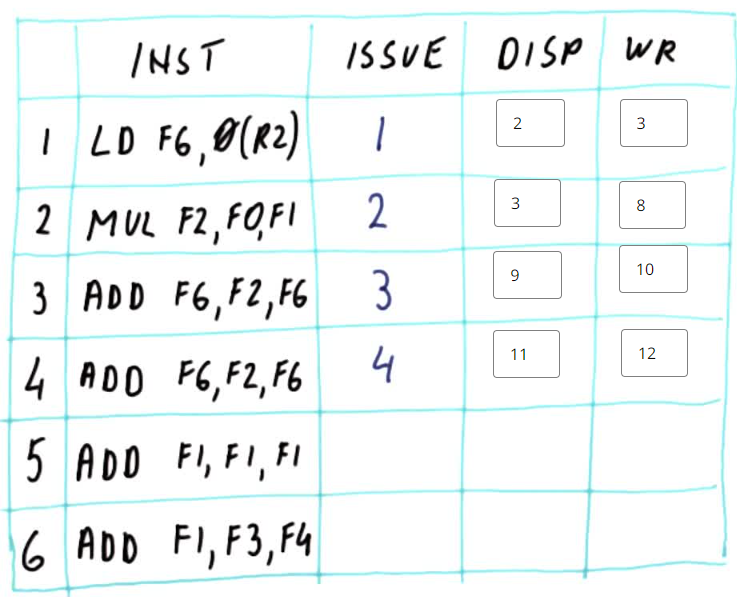 INST ISSUE DISP WR
1 LD F6, 0(R2) 1 2 3
2 MUL F2, F0, F1 2 3 8
3 ADD F6, F2, F6 3 9 10
4 ADD F6, F2, F6 4 11 12
5 ADD F1, F1, F1
6 ADD F1, F3, F4